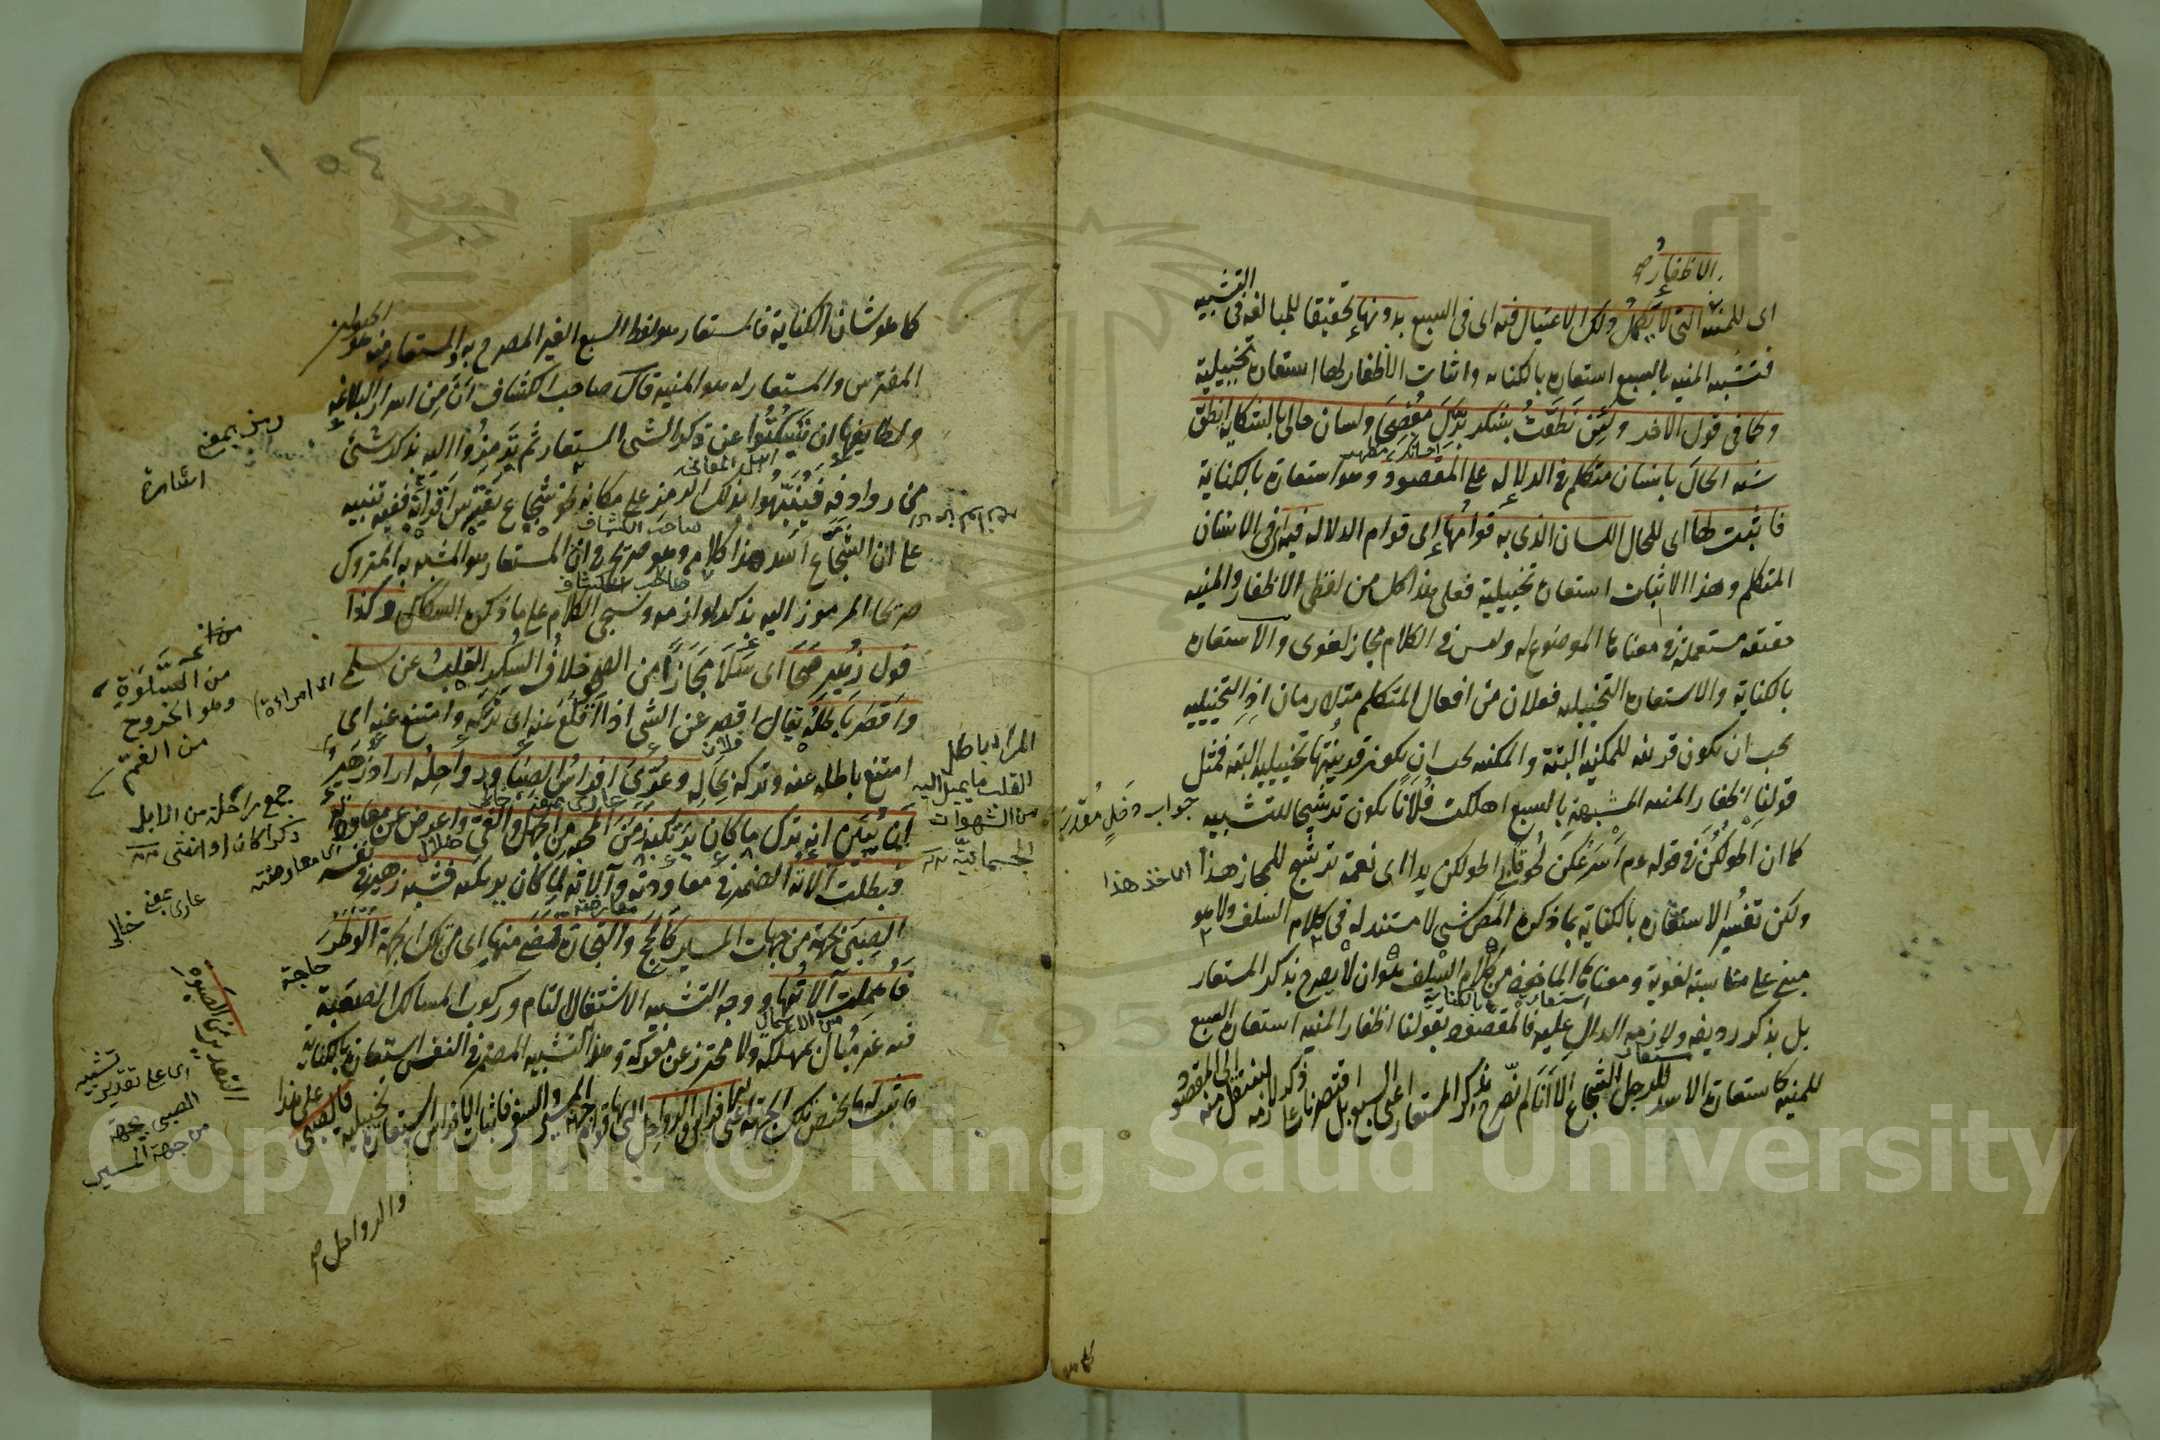 الاظفار صح
اى للمنية التى لا يكمل ذلك الاغتيال فيه اى فى السبع بدونها تحقيقا للمبالغة فى التشبيه
فتشبيه المنية بالسبع استعارة بالكناية واثبات الاظفار لها استعارة تخييلية
وكما فى قول الاخر ولئن نطقت بشكر برك مفصحا ولسان حالى بالشكاية انطق
شبه الحال بانسان متكلم فى الدلالة على المقصود وهو استعارة بالكناية
فاثبت لها اى للحال اللسان الذى به قوامها اى قوام الدلالة فيه اى فى الانسان
المتكلم وهذا الاثبات استعارة تخييلية فعلى هذا كل من لفظى الاظفار والمنية
حقيقة مستعملة فى معناها الموضوع له وليس فى الكلام مجاز لغوى والاستعارة
بالكناية والاستعارة التخييلية فعلان من افعال المتكلم متلازمان اذ التخييلية
يجب ان يكون قرينة للمكنية البتة والمكنية يجب ان يكون قرينتها تخييلية البتة فمثل
قولنا اظفار المنية المشبهة بالسبع اهلكت فلانا يكون ترشيحا للتشبيه
كما ان اطولكن فى قوله عم اسرعكن لحوقا بى اطولكن يدا اى نعمة ترشيح للمجاز هذا
ولكن تفسير الاستعارة بالكناية بما ذكره المص شئ لا مستند له فى كلام السلف ولا هو
مبنى على مناسبة لغوية ومعناها الماخوذ من كلام السلف هو ان لا يصرح بذكر المستعار
بل بذكر رديفه ولازمه الدال عليه فالمقصود بقولنا اظفار المنية استعارة السبع
للمنية كاستعارة الاسد للرجل الشجاع الا انا لم نصرح بذكر المستعار اعنى السبع بل اقتصرنا على ذكر لازمه لينتقل منه الى المقصود
احسانك
مظهر
استعارة بالكناية
مستعار
جواب دخل مقدر
اى خذ هذا
كما هو
كما هو شان الكناية فالمستعار هو لفظ السبع الغير المصرح به والمستعار منه هو الحيوان
المفترس والمستعار له هو المنية قال صاحب الكشاف ان من اسرار البلاغة
ولطايفها ان يسكتوا عن ذكر الشئ المستعار ثم يرمزوا اليه بذكر شئ
من روادفه فينبهوا بذلك الرمز على مكانه نحو شجاع يفترس اقرانه ففيه تنبيه
على ان الشجاع اسد هذا كلامه وهو صريح فى ان المستعار هو المشبه به المتروك
صريحا المرموز اليه بذكر لوازمه وسيجى الكلام على ما ذكره السكاكى وكذا
قول زهير صحا اى سلا مجازا من الصحو خلاف السكر القلب عن سلمى
واقصر باطله يقال اقصر عن الشئ اذا اقلع عنه اى تركه وامتنع عنه اى
امتنع باطله عنه وتركه بحاله وعرى افراس الصبا ورواحله اراد زهير
ان يبين انه ترك ما كان يرتكبه زمن المحبة من الجهل والغى واعرض عن معاودته
فبطلت الاته الضمير فى معاودته وآلاته لما كان يرتكبه فشبه زهير فى نفسه
الصبى بجهة من جهات المسير كالحج والتجارة قضى منها اى من تلك الجهة الوطر
فاهملت آلاتها ووجه التشبيه الاشتغال التام وركوب المسالك الصعبة
فيه غير مبال بمهلكة ولا محترز عن معركة وهذا التشبيه المضمر فى النفس استعارة بالكناية
واثبت له ما يختص تلك الجهة اعنى الافراس والرواحل التى بها قوام جهة المسير والسفر فاثبات الافراس استعارة تخييلية فالصبى على هذا
اهل المعانى
صاحب الكشاف
صاحب الكشاف
فلان
عارى بمعنى خالى
ضلال
معارضة
من الاعمال
رمز بمعنى
اشارة
من السلوة
وهو الخروج
من الغم
اى امراة
المراد باطل
القلب ما يميل اليه
من الشهوات
الجسمانية
جمع راحلة من الابل
ذكرا كان او انثى
اى معارضته
عارى بمعنى خالى
حاجة
التقدير من الصبوة
اى على تقدير تشبيه
الصبى بجهة
من جهة المسير
والرواحل صح